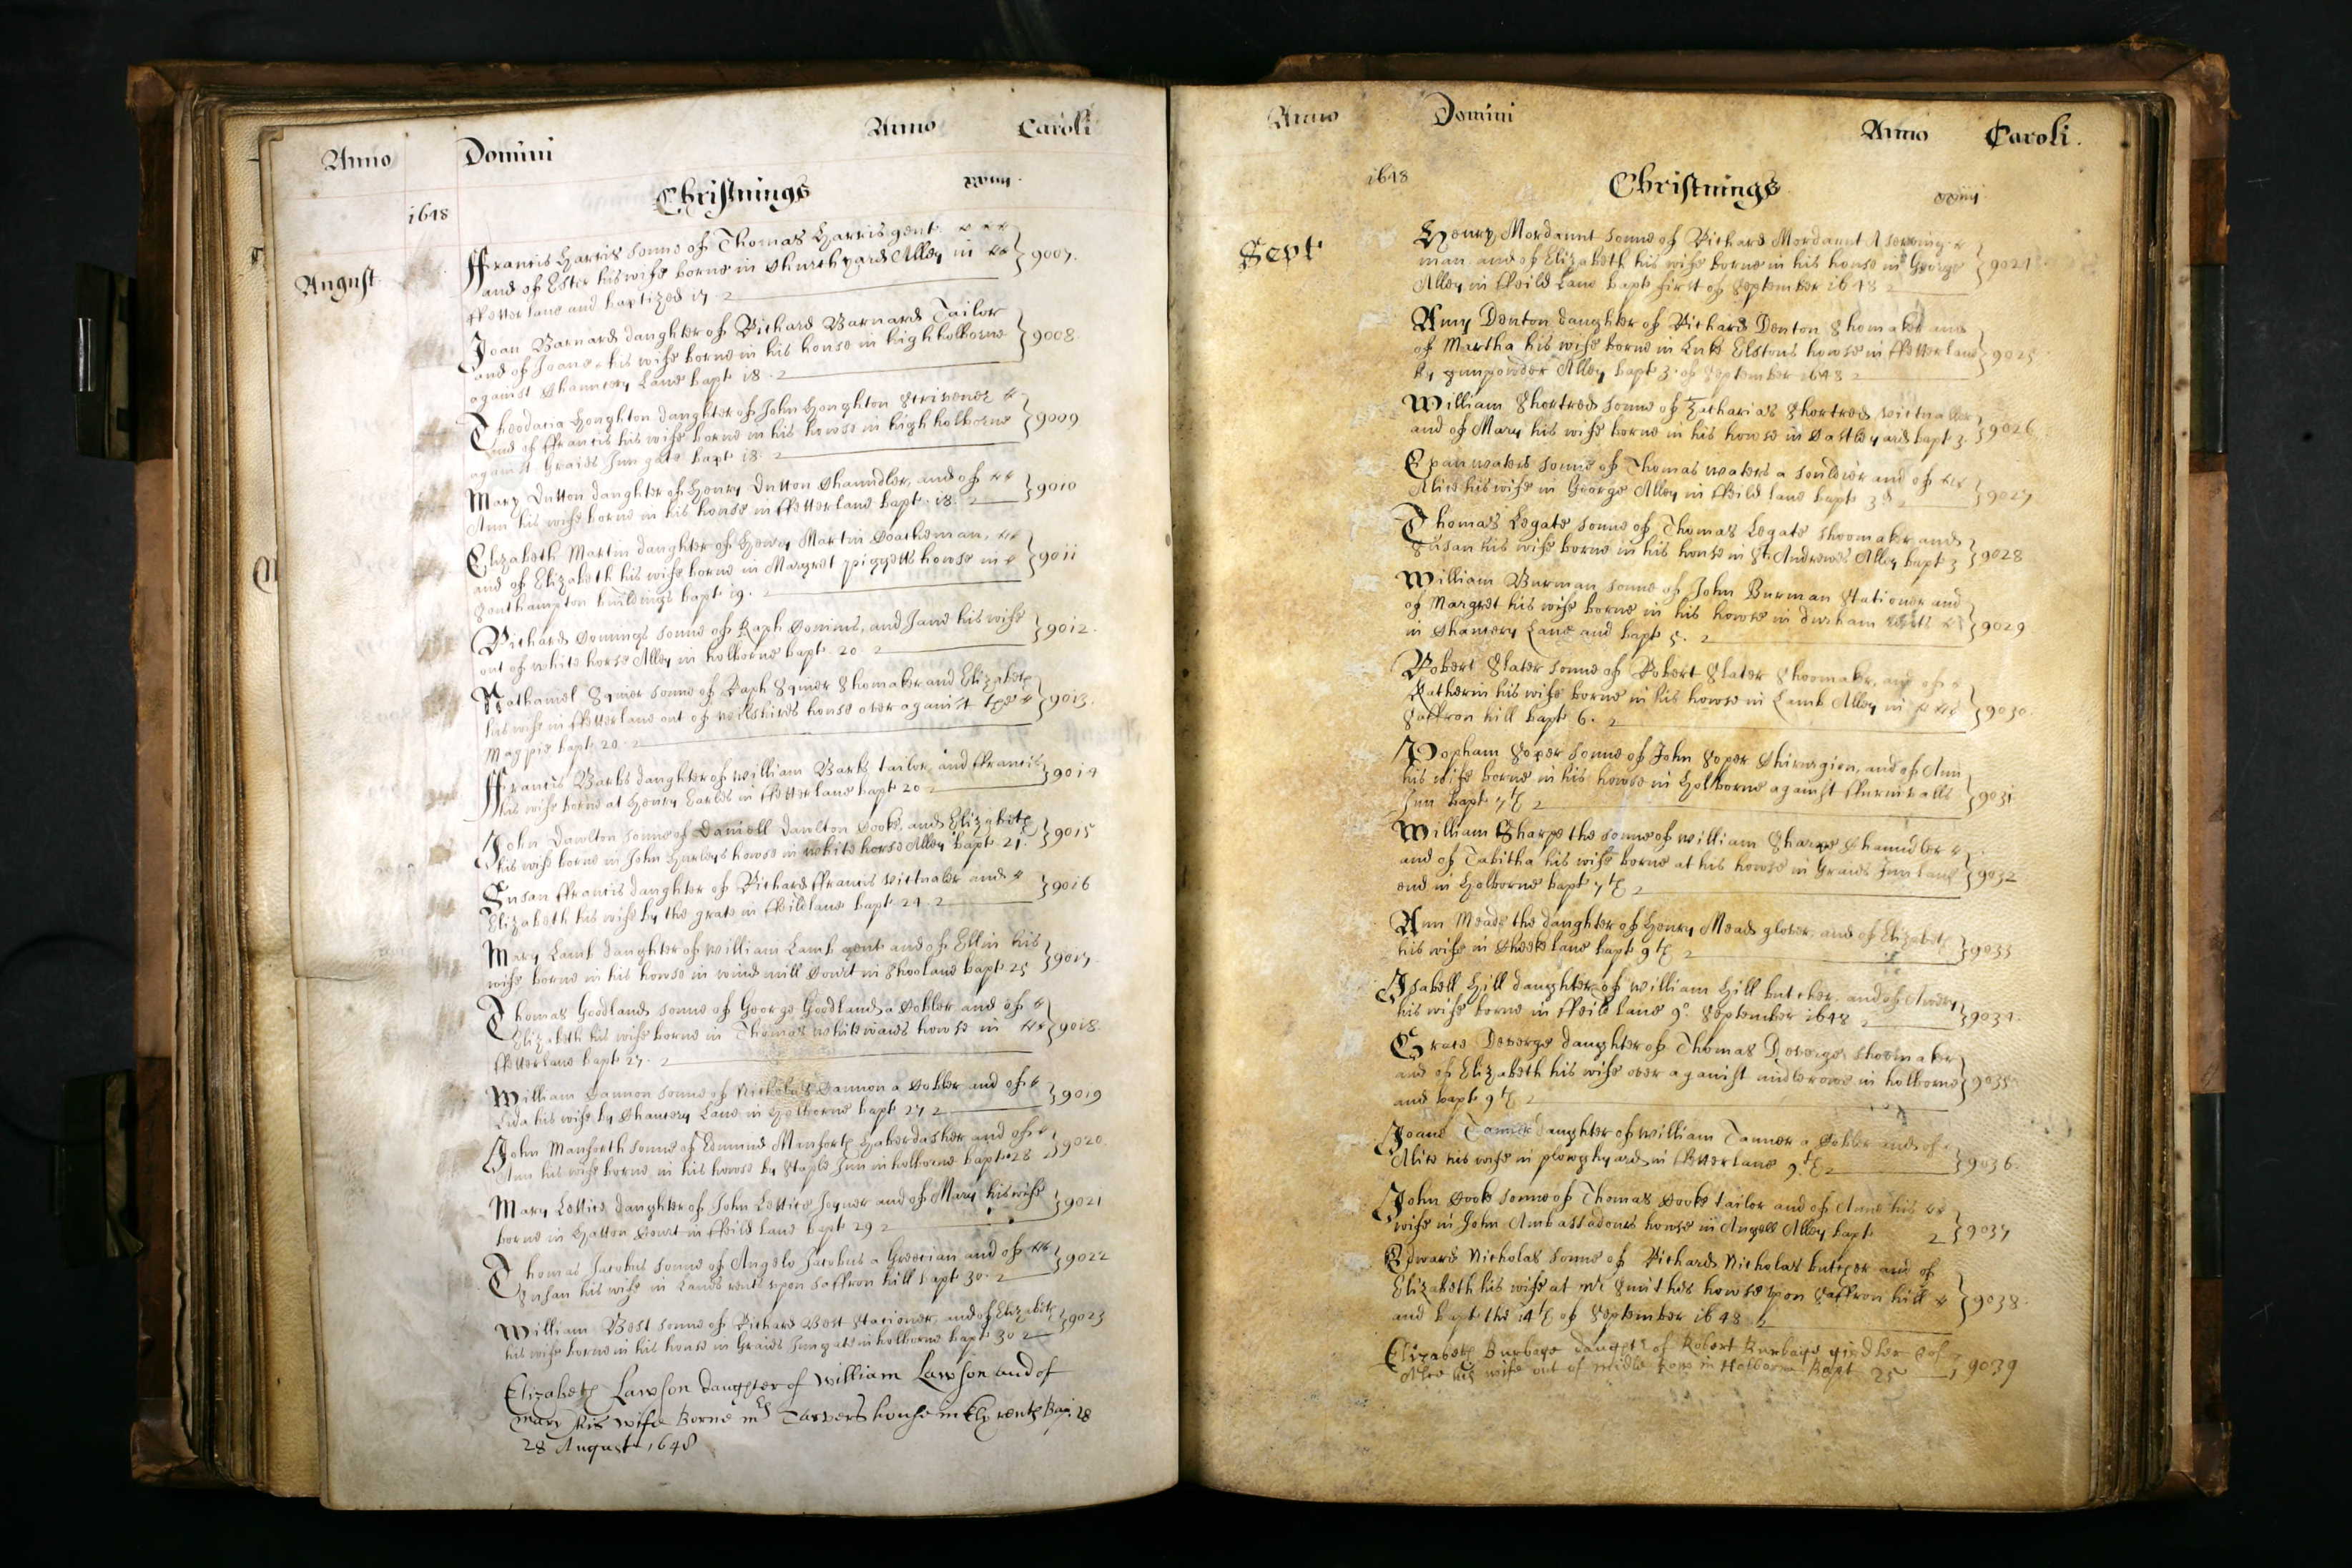 Anno Domini Anno Caroli
1648 Christnings xxiiij
August
ffrancis Harris sonne of Thomas Harris gent.
and of Ester his wife borne in Church yard Alley in } 9007.
ffetter lane and baptized 17
Joan Barnard daughter of Richard Barnard Tailor
and of Joane his wife borne in his house in high holborne } 9008.
against Chauncery Lane bapt. 18.
Theodatia Houghton daughter of John Houghton Scrivener
and of ffrancis his wife borne in his howse in high holborne } 9009
against Graies Inn gate bapt. 18.
Mary Dutton daughter of Henry Dutton Chaundler, and of
Ann his wife borne in his house in ffetter lane bapt. 18. } 9010
Elizabeth Martin daughter of Henry Martin Coacheman,
and of Elizabeth his wife borne in Margret piggetts howse in } 9011
Southampton buildings bapt. 19.
Richard Connings sonne of Raph Connins, and Jane his wife
out of white horse Alley in holborne bapt. 20 } 9012.
Nathaniel Squier sonne of Raph Squier Shomaker and Elizabeth
his wife in ffetter lane out of Wilshires house over against the } 9013.
Magpie bapt. 20
ffrancis Barks daughter of William Barks tailor, and ffrancis
his wife borne at Henry Earles in ffetter lane bapt 20 } 9014
John Dawlton sonne of Daniell Dawlton Cooke, and Elizabeth
his wife borne in John Harleys howse in white horse Alley bapt. 21. } 9015
Susan ffrancis daughter of Richard ffrancis victualer and
Elizabeth his wife by the grate in ffeild lane bapt 24. } 9016
Mary Lamb daughter of William Lamb gent and of Ellin his
wife borne in his howse in wind mill Court in Shoo lane bapt. 25 } 9017.
Thomas Goodland sonne of George Goodland a Cobler and of
Elizabeth his wife borne in Thomas whitewaies howse in } 9018.
ffetter lane bapt 27.
William Cannon sonne of Nicholas Cannon a Cobler and of
Lida his wife by Chancery Lane in Holborne bapt 27 } 9019
John Manforth sonne of Edmund Manforth Haberdasher and of
Ann his wife borne in his howse by Staple Inn in holborne bapt. 28 } 9020.
Mary Lettice daughter of John Lettice Joyner and of Mary his wife
borne in Hatton Court in ffeild lane bapt 29 } 9021
Thomas Jacobus sonne of Angelo Jacobus a Greecian and of
Susan his wife in Lands rents upon saffron hill bapt 30. } 9022
William Best sonne of Richard Best Stationer, and of Elizabeth
his wife borne in his house in Graies Inn gate in holborne bapt 30 } 9023
Elizabeth Lawson daughter of William Lawson and of
mary his wife Borne in Tarvers house in Ely rents Bap. 28
28 August 1648
Anno Domini Anno Caroli.
1648 Christnings xxiiij
Sept.
Henry Mordaunt sonne of Richard Mordaunt A serving
man. and of Elizabeth his wife borne in his house in George } 9024
Alley in ffeild Lane bapt first of September 1648
Amy Denton daughter of Richard Denton Shomaker and
of Martha his wife borne in Luke Elstons howse in ffetter lane } 9025
by gunpowder Alley bapt 3. of September 1648
William Shortred sonne of Zacharias Shortred victualer
and of Mary his wife borne in his howse in Castle yard bapt 3. } 9026
waters sonne of Thomas waters a souldier and of
Alice his wife in George Alley in ffeild lane bapt 3d } 9027
Thomas Legate sonne of Thomas Legate shoomaker and
Susan his wife borne in his house in St. Andrewes Alley bapt 3 } 9028
William Burman sonne of John Burman Stationer and
of Margret his wife borne in his howse in durham rents } 9029
in Chancery Lane and bapt 5.
Robert Slater sonne of Robert Slater Shoomaker, and of
Katherin his wife borne in his howse in Lamb Alley in } 9030.
Saffron hill bapt 6.
Popham Soper sonne of John Soper Chirurgion, and of Ann
his wife borne in his howse in Holborne against ffurnivalls } 9031
Inn bapt 7th
William Sharpe the sonne of William Sharpe Chaundler
and of Tabitha his wife borne at his howse in Graies Inn lane } 9032
end in Holborne bapt 7th
Ann Meade the daughter of Henry Meade glover, and of Elizabeth
his wife in Cheeke lane bapt 9th } 9033
Isabell Hill daughter of William Hill butcher. and of Avery
his wife borne in ffeild lane 9o September 1648 } 9034.
Grace Deverge daughter of Thomas Deverge shoomaker
and of Elizabeth his wife over against midlerowe in holborne } 9035
and bapt 9th
Joane Tanner daughter of William Tanner a Cobler and of
Alice his wife in plowghyard in ffetter lane 9.th } 9036.
John Cooke sonne of Thomas Cooke tailor and of Anne his
wife in John Ambassadours house in Angell Alley bapt } 9037
Edward Nicholas sonne of Richard Nicholas butcher and of
Elizabeth his wife at Mr Smithes howse upon Saffron hill } 9038.
and bapt the 14th of September 1648
Elizabeth Burbage daught. of Robert Burbage girdler & of
Alce his wife out of midle Row in Holborne Bapt 25 } 9039